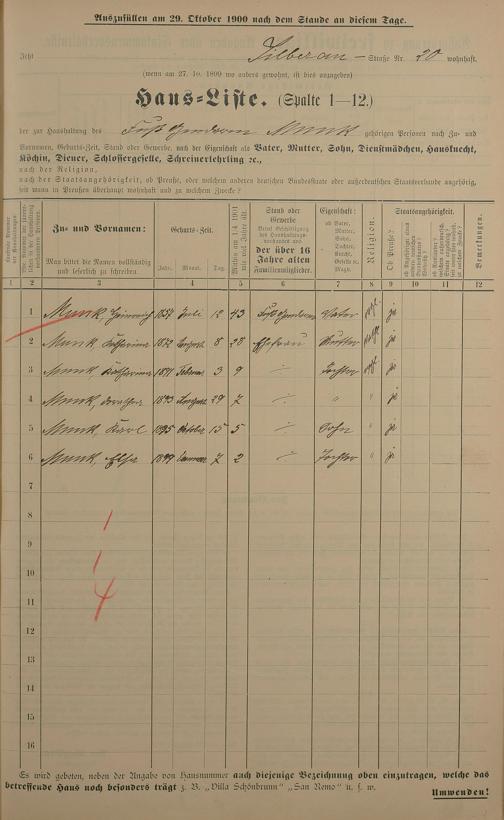 Auszufüllen am 29. Oktober 1900 nach dem Stande an diesem Tage.
Silberau — Straße Nr. 20 wohnhaft.
(wenn am 27. 10. 1899 wo anders gewohnt, ist dies anzugeben)
Haus=Liste. (Spalte 1—12.)
der zur Haushaltung des Munk gehörigen Personen nach Zu- und
Vornamen, Geburts-Zeit, Stand oder Gewerbe, nach der Eigenschaft als Vater, Mutter, Sohn, Dienstmädchen, Hausknecht,
Köchin, Diener, Schlossergeselle, Schreinerlehrling ꝛc.,
nach der Religion,
nach der Staatsangehörigkeit, ob Preuße, oder welchem anderen deutschen Bundesstaate oder außerdeutschen Staatsverbande angehörig,
seit wann in Preußen überhaupt wohnhaft und zu welchem Zwecke?
Zu- und Vornamen:
Man bittet die Namen vollständig
und leserlich zu schreiben.
Geburts-Zeit.
Jahr. Monat. Tag.
Mithin am 1/4 1901
wie viel Jahre alt.
Stand oder
Gewerbe
der über 16
Jahre alten
Familienmitglieder.
Eigenschaft:
ob Vater,
Mutter,
Sohn,
Tochter,
Knecht,
Geselle u.
Magd.
Religion.
Staatsangehörigkeit.
Ob Preuße?
Bemerkungen.
1 2 3 4 5 6 7 8 9 10 11 12
1 Munk, Heinrich Juli 12 43 Vater ja
2 Munk, Katharina 8 28 Ehefrau Mutter ja
3 Munk, Katharina 1891 Februar 3 9 Tochter ja
4 Munk, Dorothea 1893 29 7 " " ja
5 Munk, Karl 1895 Oktober 15 5 Sohn " ja
6 Munk, Elsa 1899 Januar 7 2 Tochter " ja
7
8
9
10
11
12
13
14
15
16
Es wird gebeten, neben der Angabe von Hausnummer auch diejenige Bezeichnung oben einzutragen, welche das
betreffende Haus noch besonders trägt z. B. „Villa Schönbrunn" „San Remo" u. s. w.
Umwenden!